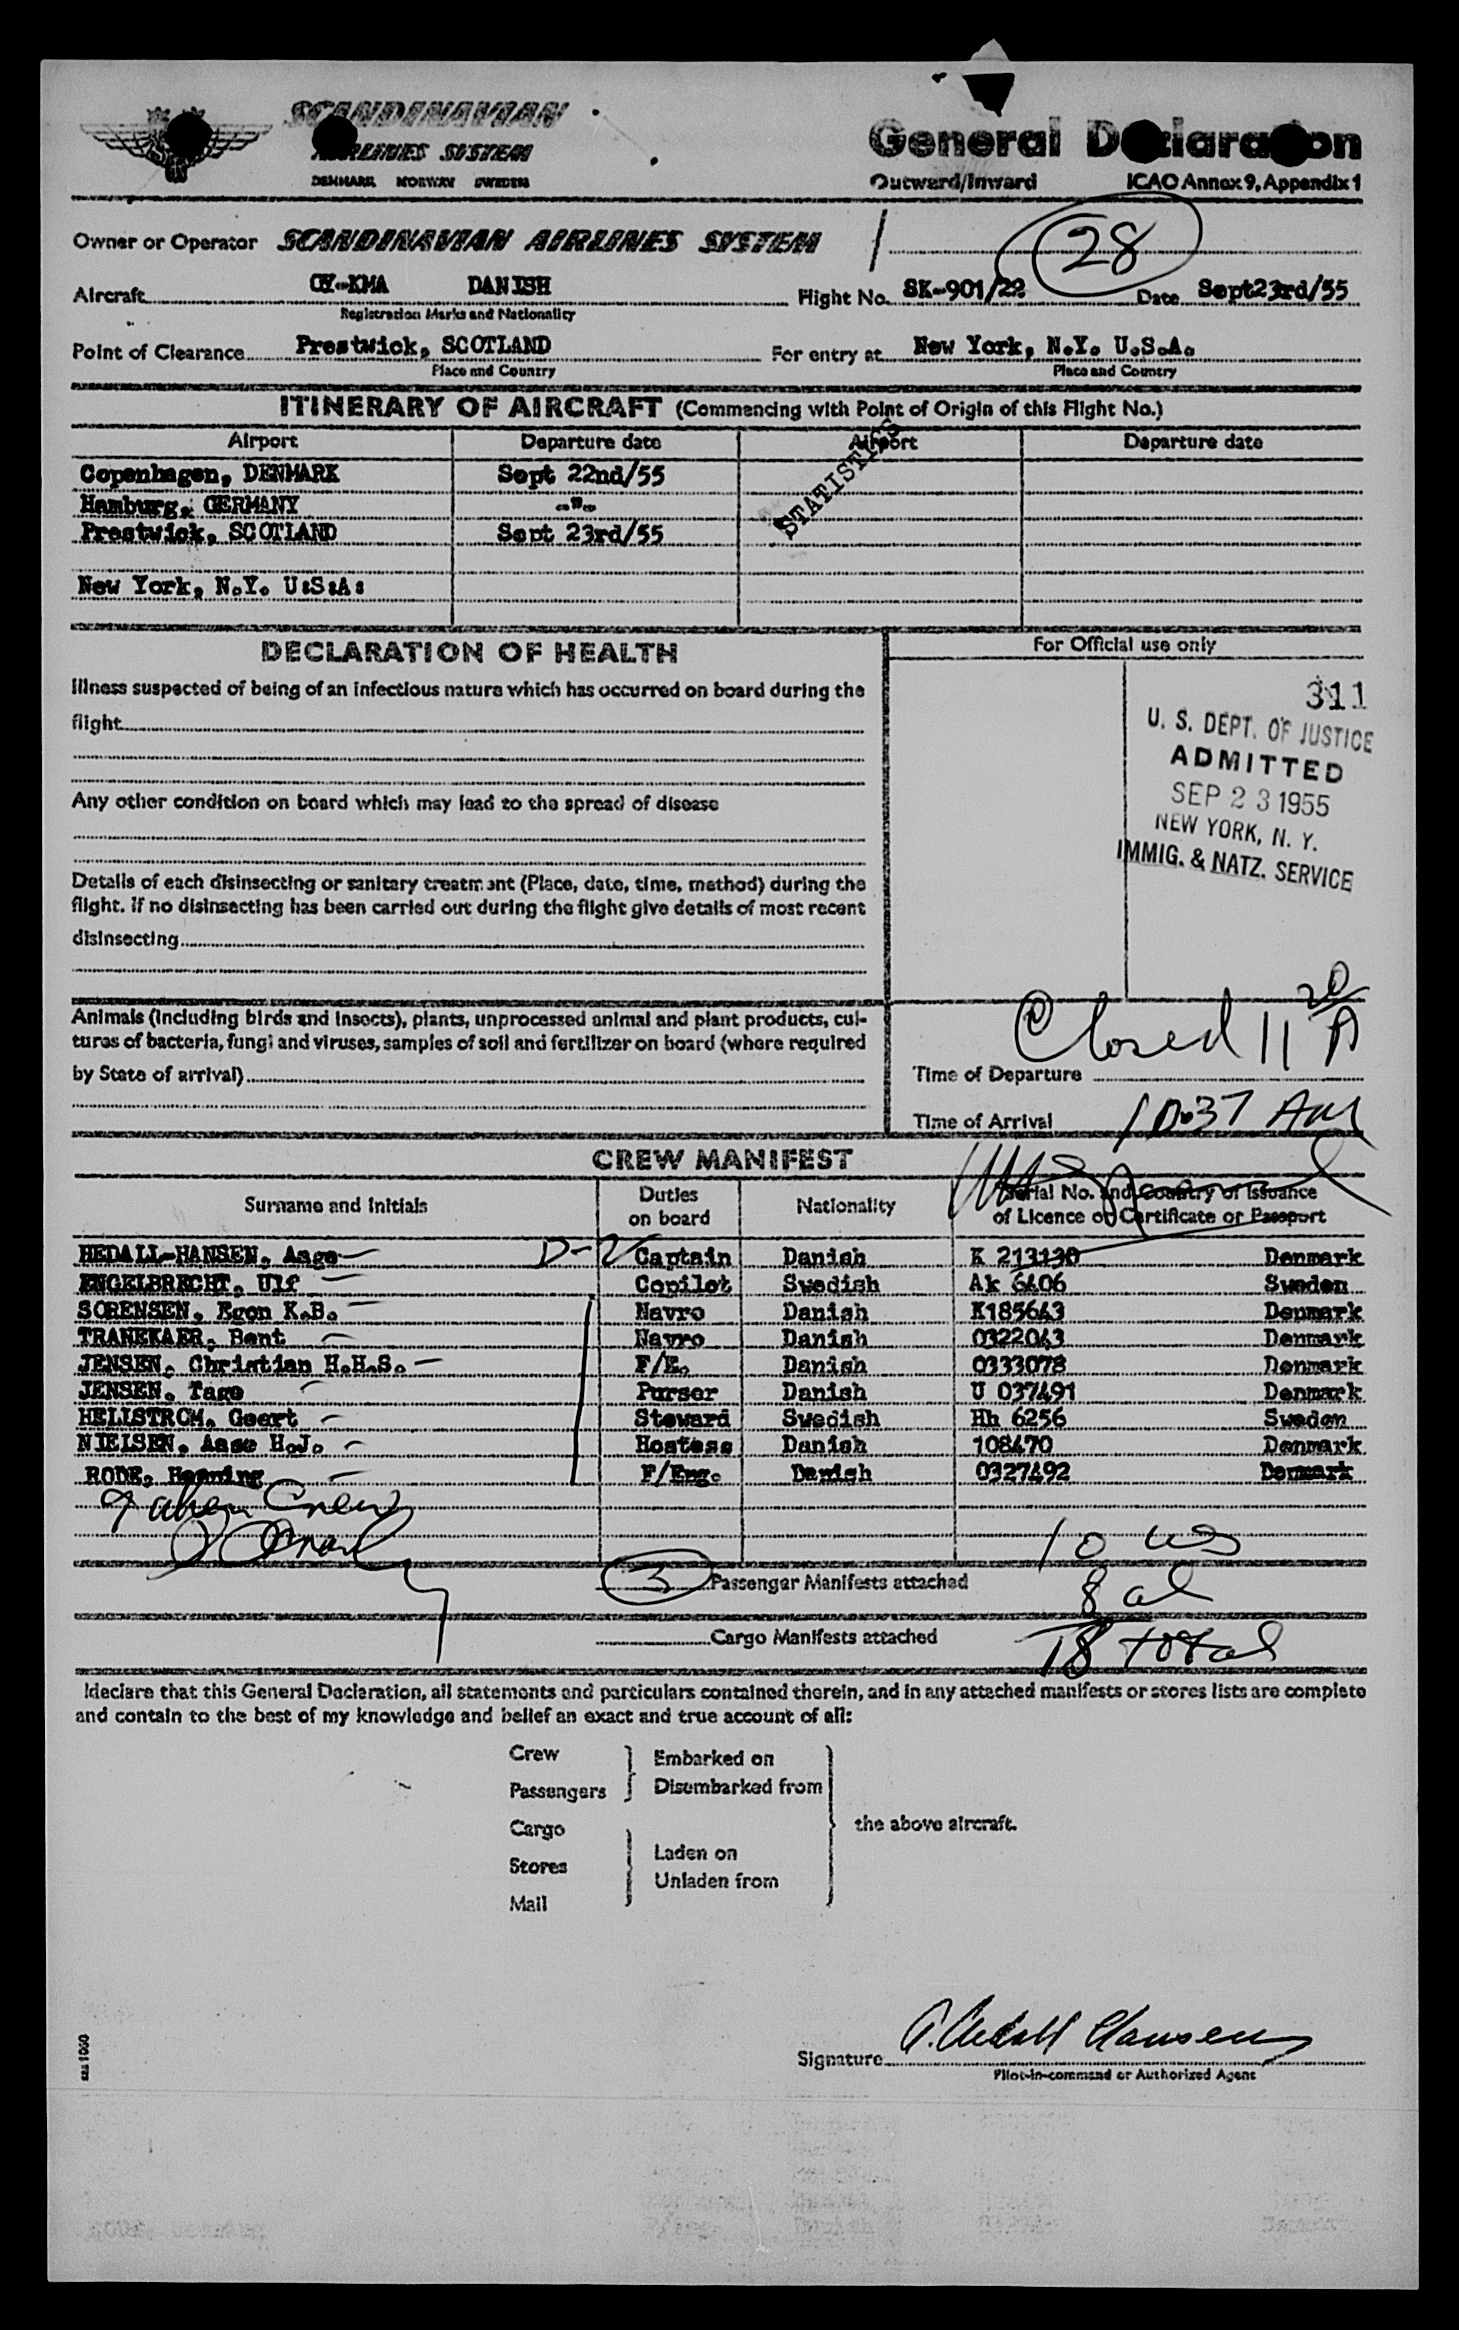 SCANDINAVIAN
AIRLINES SYSTEM
DENMARK NORWAY SWEDEN
General Declaration
Outward/Inward ICAO Annex 9, Appendix 1
Owner or Operator SCANDINAVIAN AIRLINES SYSTEM
28
Aircraft OY-KMA DANISH Flight No. SK-901/22 Date Sept23rd/55
Registration Marks and Nationality
Point of Clearance Prestwick, SCOTLAND For entry at New York, N.Y. U.S.A.
Place and Country Place and Country
ITINERARY OF AIRCRAFT (Commencing with Point of Origin of this Flight No.)
Airport Departure date Airport Departure date
STATISTICS
Copenhagen, DENMARK Sept 22nd/55
Hamburg, GERMANY -"-
Prestwick, SCOTLAND Sept 23rd/55
New York, N.Y. U:S:A:
DECLARATION OF HEALTH
Illness suspected of being of an infectious nature which has occurred on board during the
flight
Any other condition on board which may lead to the spread of disease
Details of each disinsecting or sanitary treatment (Place, date, time, method) during the
flight. If no disinsecting has been carried out during the flight give details of most recent
disinsecting
Animals (including birds and insects), plants, unprocessed animal and plant products, cul-
tures of bacteria, fungi and viruses, samples of soil and fertilizer on board (where required
by State of arrival)
For Official use only
311
U. S. DEPT. OF JUSTICE
ADMITTED
SEP 23 1955
NEW YORK, N. Y.
IMMIG. & NATZ. SERVICE
Closed 11 20 A
Time of Departure
Time of Arrival 10.37 AM
CREW MANIFEST
Surname and Initials Duties on board Nationality Serial No. and Country of Issuance
of Licence or Certificate or Passport
HEDALL-HANSEN, Aage D-2 Captain Danish K 213130 Denmark
ENGELBRECHT, Ulf Copilot Swedish Ak 6406 Sweden
SORENSEN, Egon K.B. Navro Danish K185643 Denmark
TRANEKAER, Bent Navro Danish 0322043 Denmark
JENSEN, Christian H.H.S. F/E. Danish 0333078 Denmark
JENSEN, Tage Purser Danish U 037491 Denmark
HELLSTROM, Geert Steward Swedish Hh 6256 Sweden
NIELSEN, Aase H.J. Hostess Danish 108470 Denmark
RODE, Henning F/Eng. Danish 0327492 Denmark
9 alien Crew
10 us
3 Passenger Manifests attached
8 al
Cargo Manifests attached
18 total
I declare that this General Declaration, all statements and particulars contained therein, and in any attached manifests or stores lists are complete
and contain to the best of my knowledge and belief an exact and true account of all:
Crew Embarked on
Passengers Disembarked from
Cargo the above aircraft.
Stores Laden on
Unladen from
Mail
Signature A. Hedall Hansen
Pilot-in-command or Authorized Agent
sas 1060